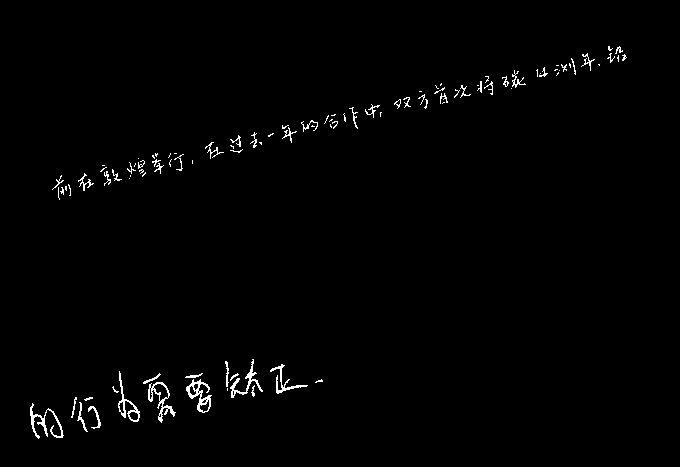 前在敦煌举行，在过去一年的合作中，双方首次将碳14测年、铅
的行为需要矫正．